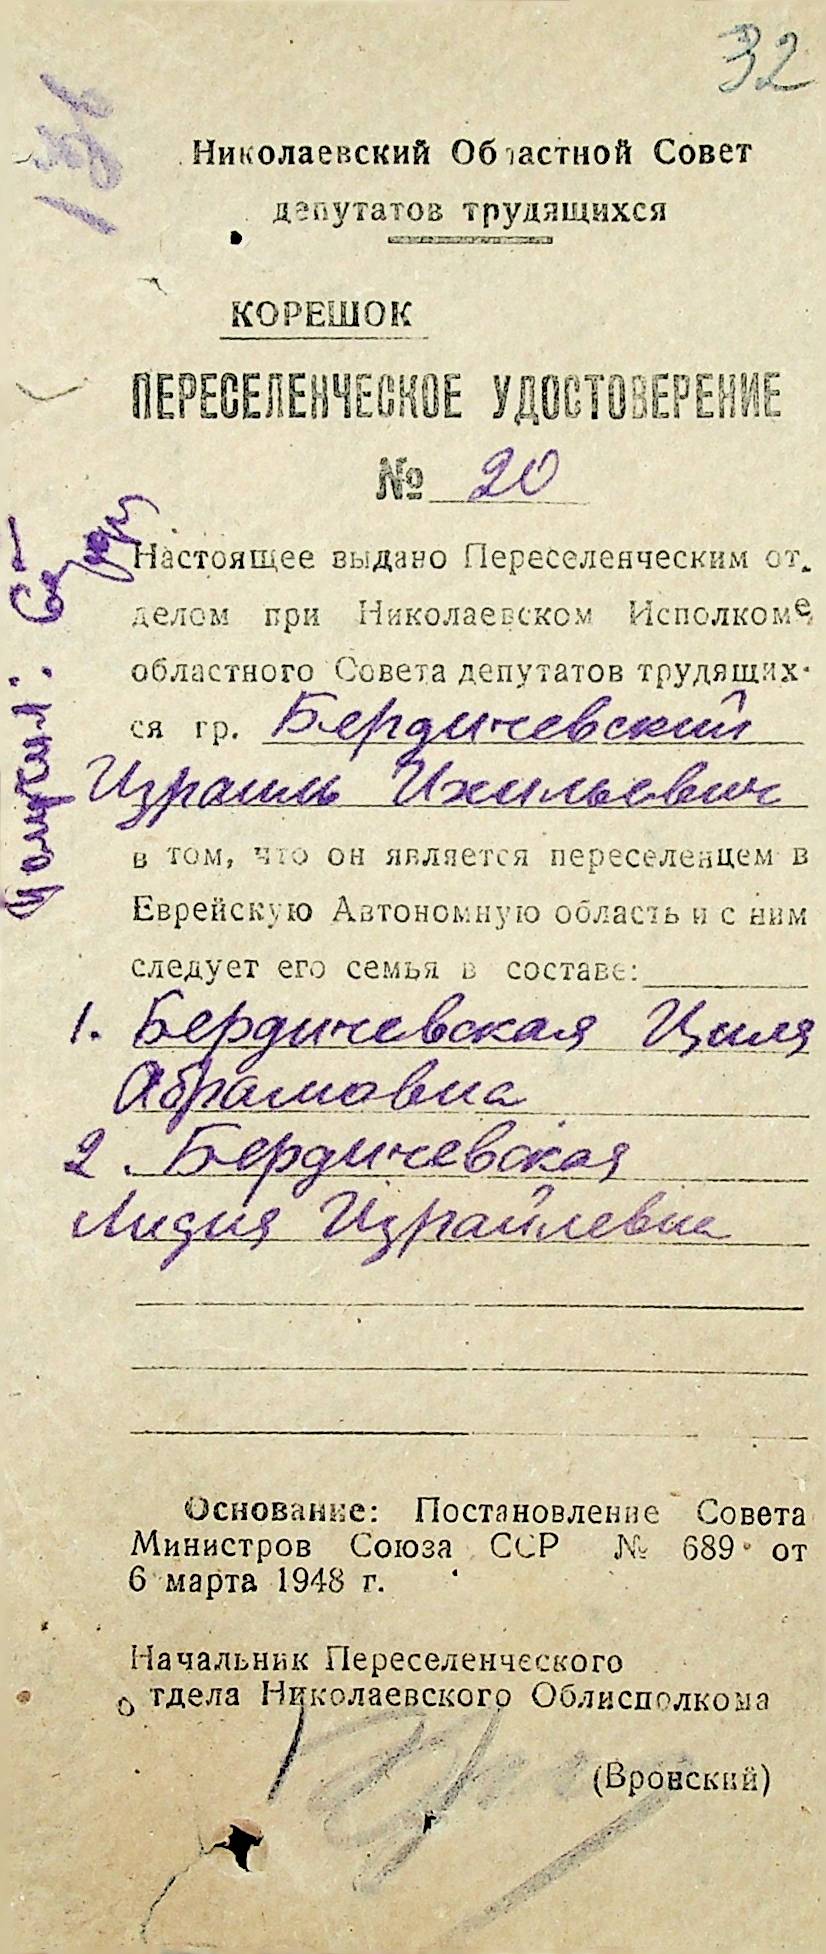 32
Николаевский Областной Совет
депутатов трудящихся
КОРЕШОК
ПЕРЕСЕЛЕНЧЕСКОЕ УДОСТОВЕРЕНИЕ
№ 20
Настоящее выдано Переселенческим от-
делом при Николаевском Исполкоме
областного Совета депутатов трудящих-
ся гр. Бердичевский
Израиль Ихильевич
в том, что он является переселенцем в
Еврейскую Автономную область и с ним
следует его семья в составе:
1. Бердичевская Циля
Абрамовна
2. Бердичевская
Лидия Израйлевна
Основание: Постановление Совета
Министров Союза ССР № 689 от
6 марта 1948 г.
Начальник Переселенческого
отдела Николаевского Облисполкома
(Вронский)